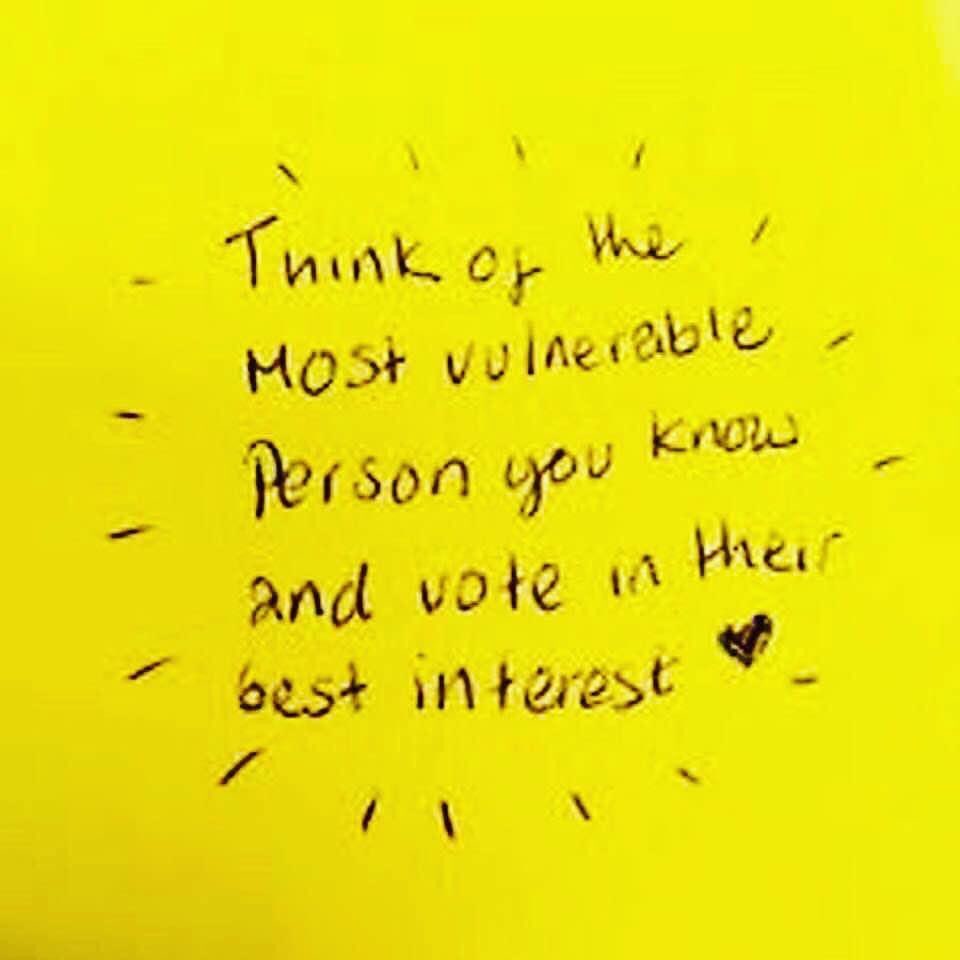 Think of the
Most vulnerable
Person you know
and vote in their
best interest ♥